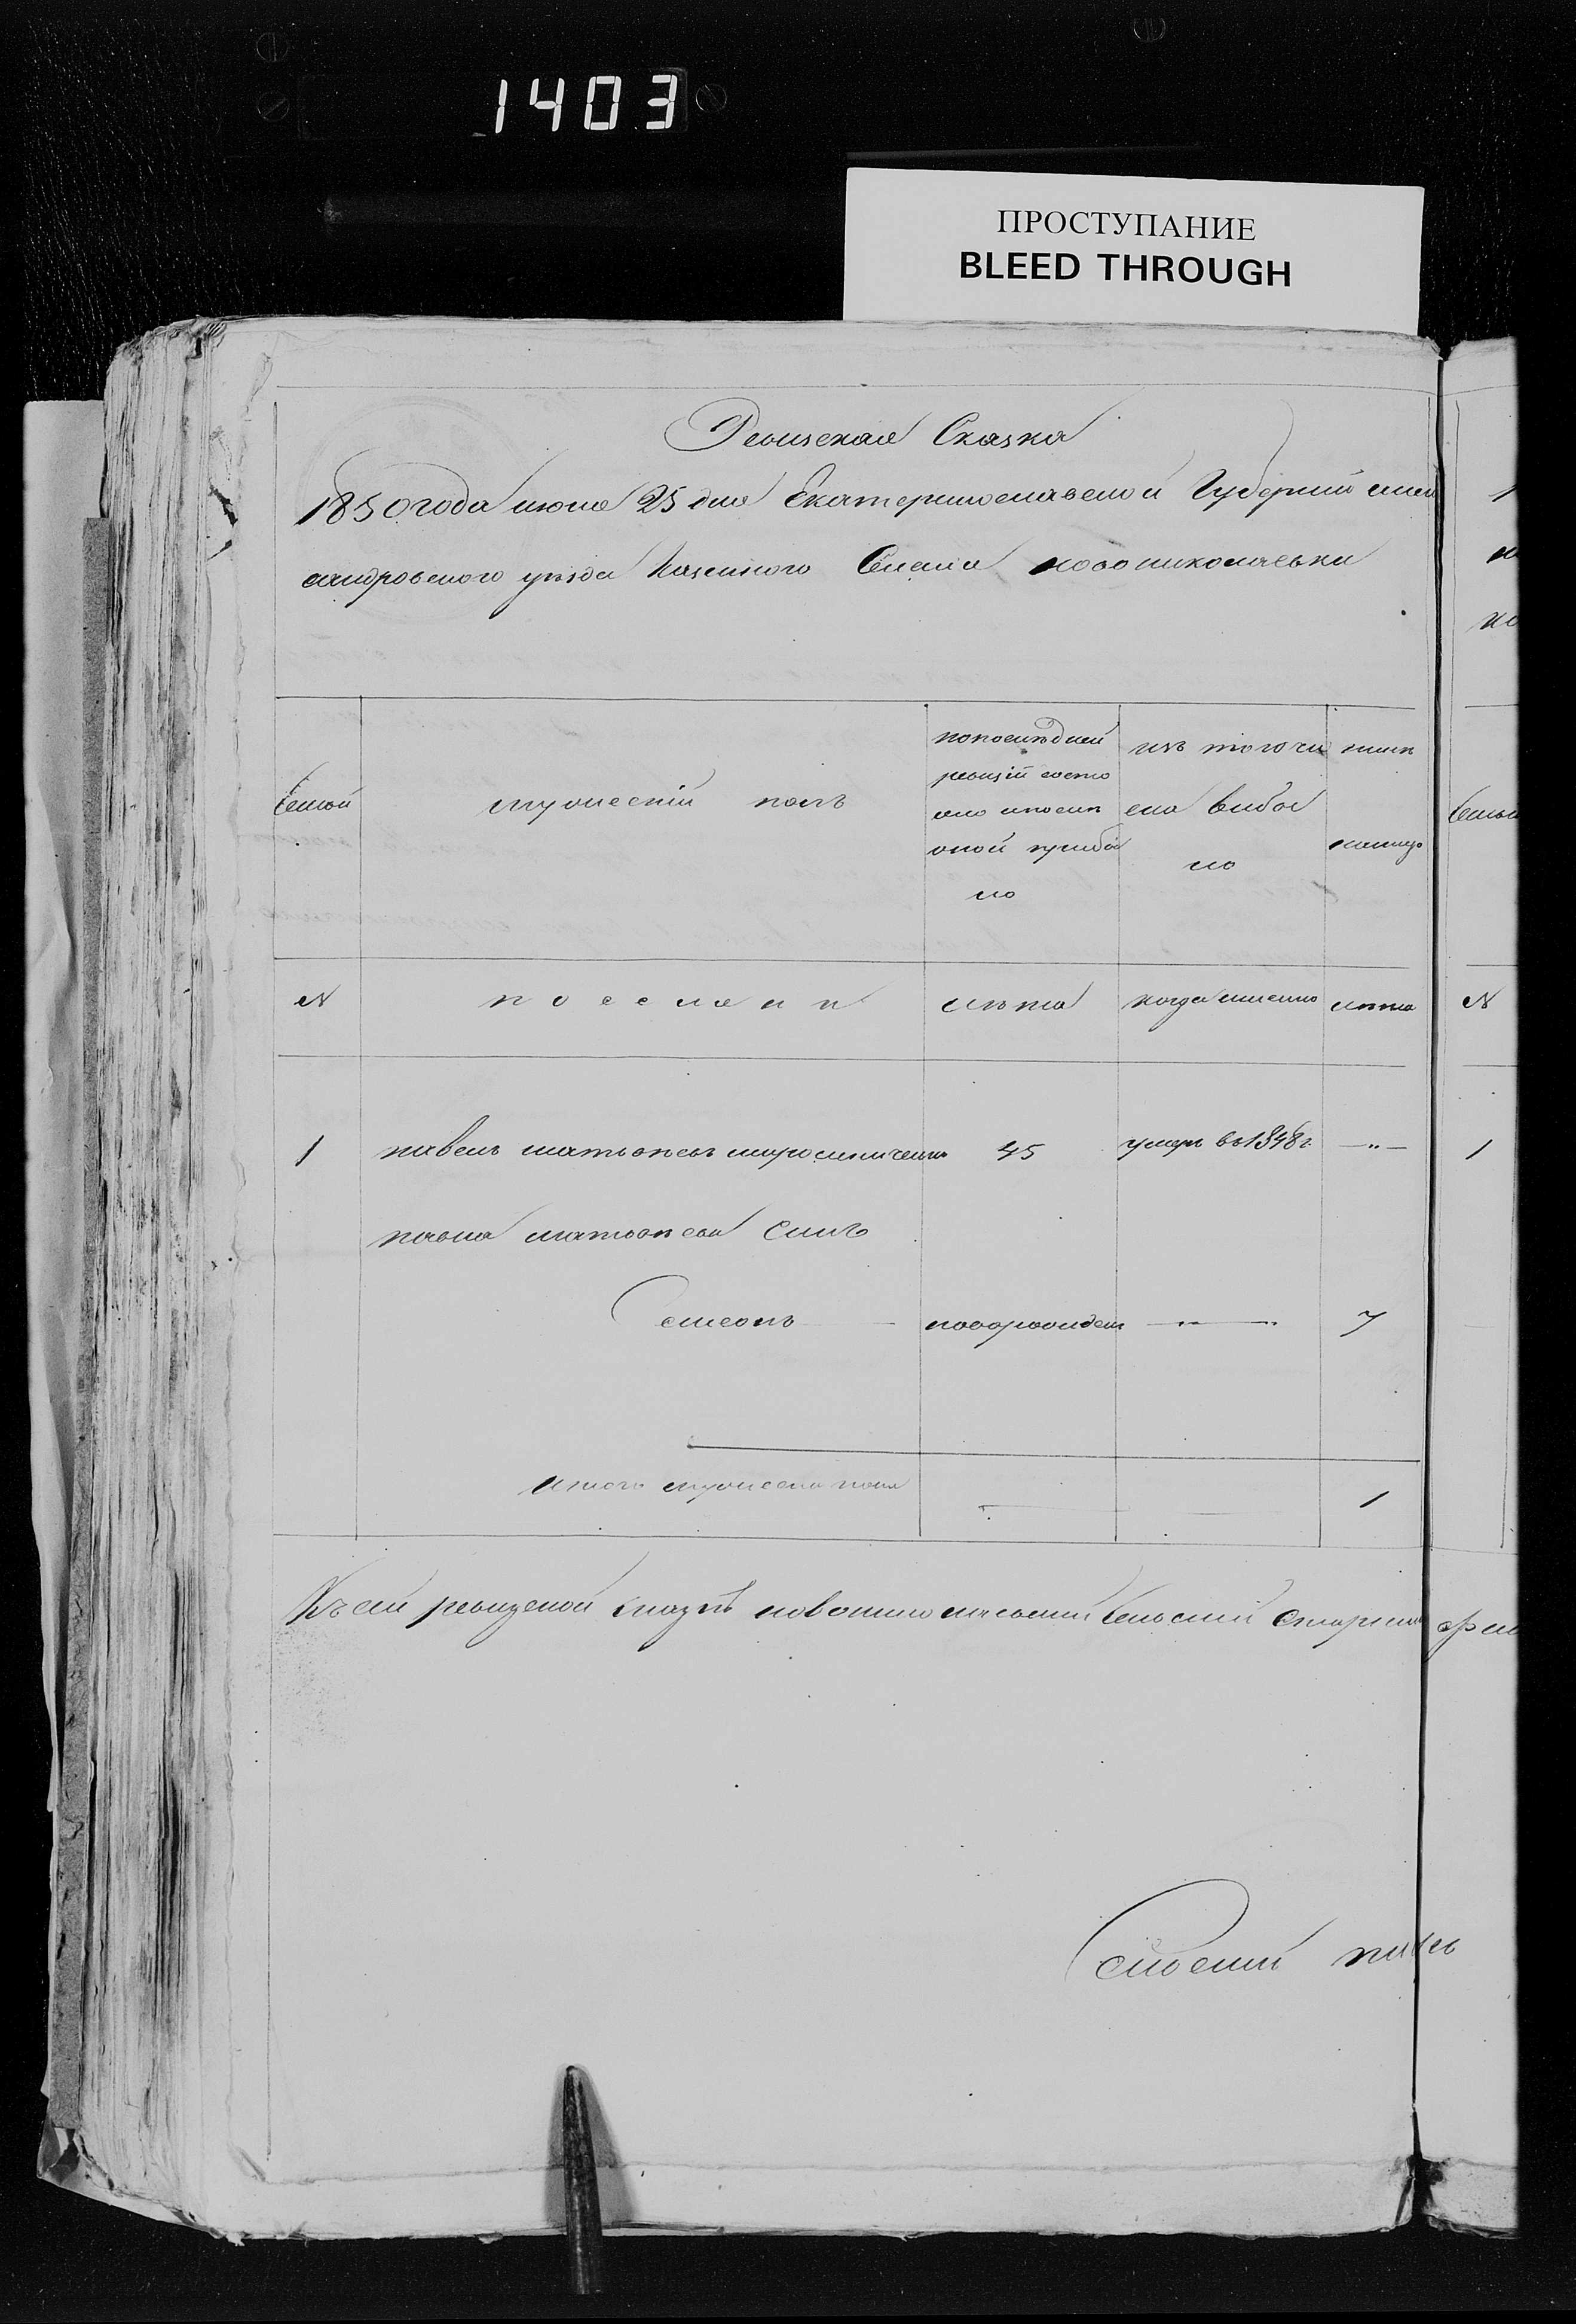 1403
ПРОСТУПАНИЕ
BLEED THROUGH
Ревизская Сказка
1850 года июня 25 дня Екатеринославской Губернии алек
сандровского уѣзда Казенного Селенія новониколаевки
Семьи
мужескій полъ
попослѣдней
ревизіи состо
яло ипослѣ
оной прибы
ло
изъ того чи
сла выбы
ло
нынѣ
налицо
N
поселянѣ
лѣта
когда именно
лѣта
N
1
павелъ матвѣевъ
45
умеръ въ 1848 г.
1
павла матвѣева Сынъ
Симеонъ
новорожден
7
итого мужеска пола
1
Къ сей ревизской сказкѣ новониколаевскій сельскій старшина